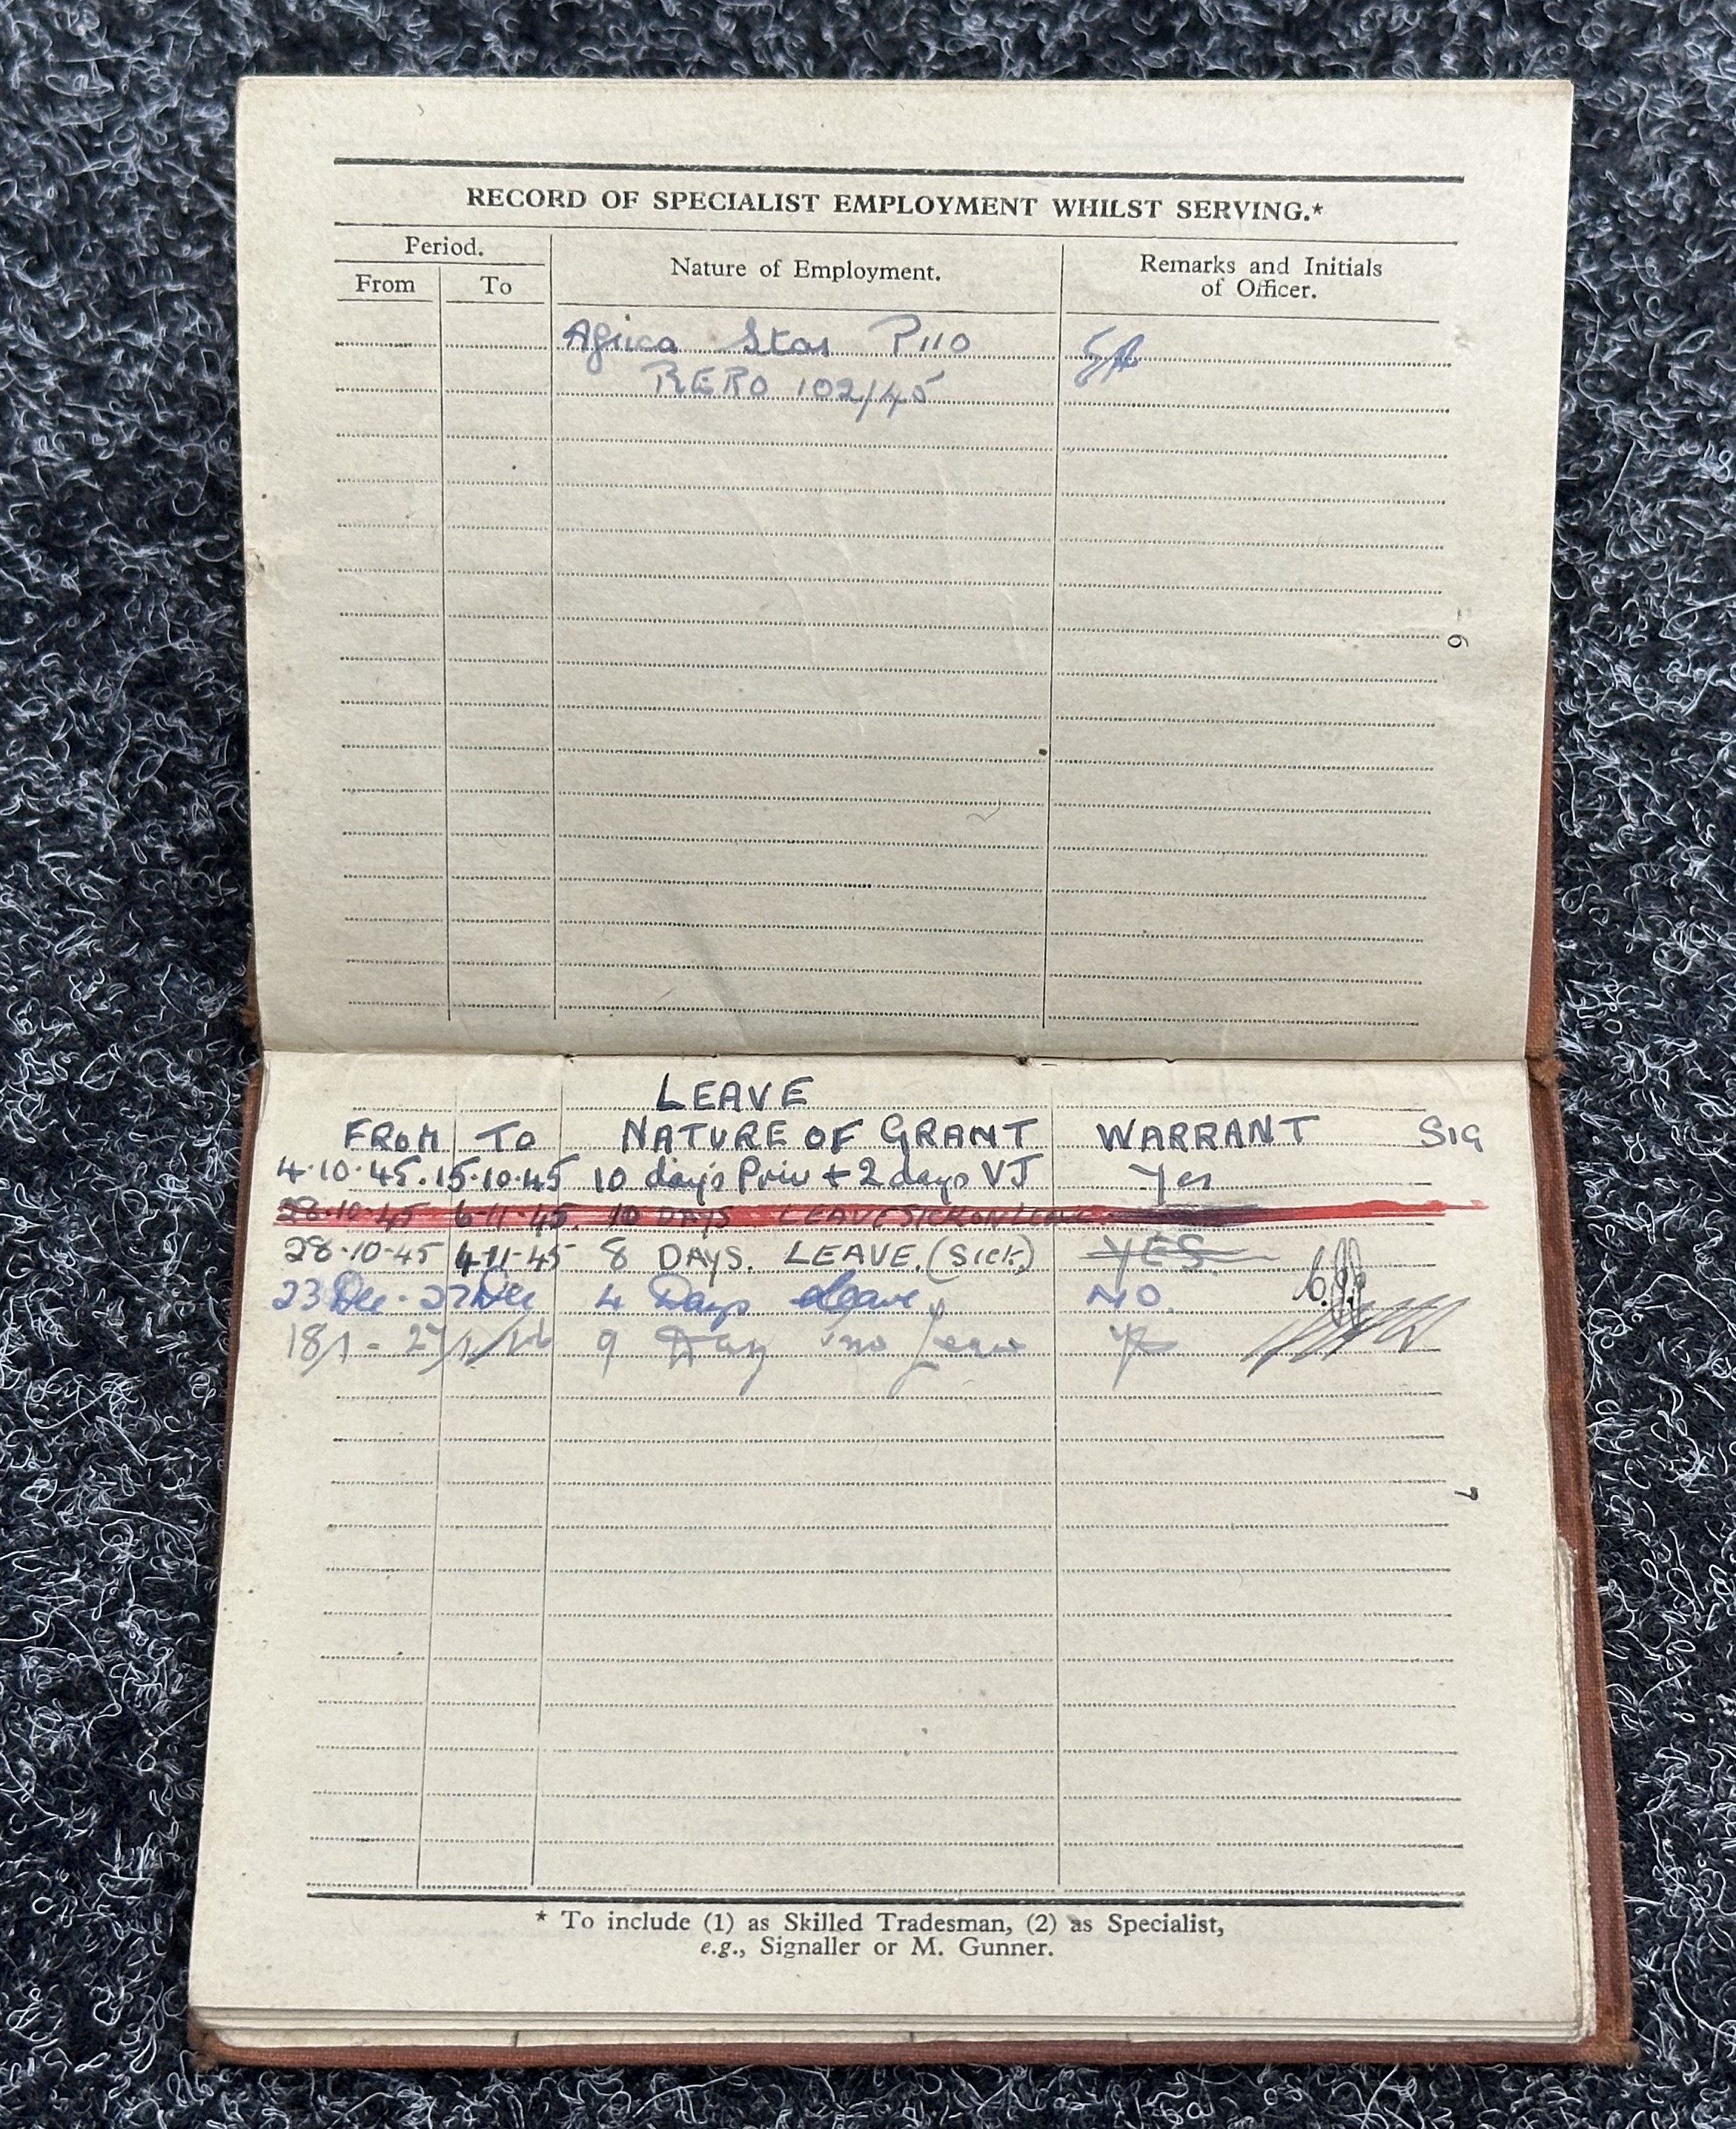 RECORD OF SPECIALIST EMPLOYMENT WHILST SERVING.*
Period.
From To Nature of Employment. Remarks and Initials
of Officer.
Africa Star P110
RERO 102/45
6
LEAVE
FROM TO NATURE OF GRANT WARRANT SIG
4.10.45. 15.10.45 10 days Priv + 2 days VJ Yes
28.10.45 6-11-45. 10 DAYS LEAVE SICK ON LEAVE
28.10-45 4-11-45 8 DAYS. LEAVE. (SICK) YES
23 Dec - 27 Dec 4 Days Leave NO.
18/1 - 27/1/46 9 Day Leave
7
* To include (1) as Skilled Tradesman, (2) as Specialist,
e.g., Signaller or M. Gunner.